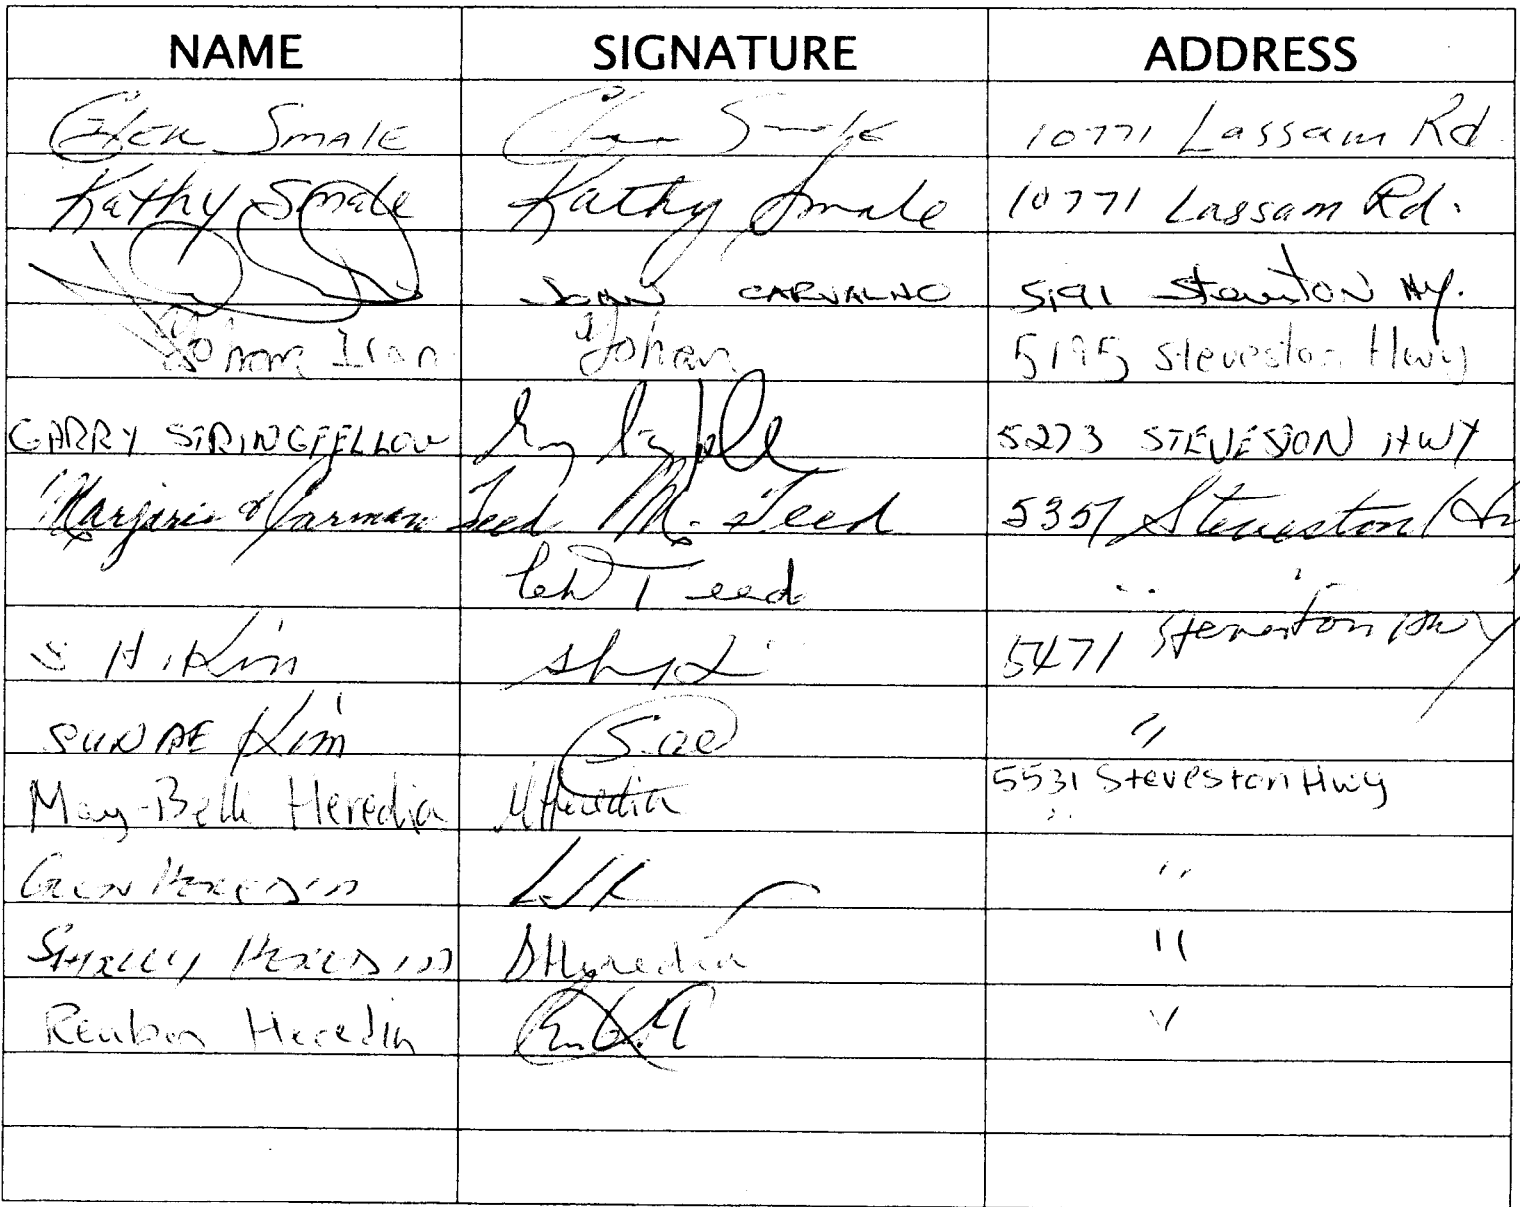 NAME SIGNATURE ADDRESS
Smale 10771 Lassam Rd
Kathy Smale Kathy Smale 10771 Lassam Rd.
JOHN CARVALHO 5191 Steveston Hy.
Johan 5195 Steveston Hwy
GARRY STRINGFELLOW 5273 STEVESTON HWY
Marjorie & Carman Teed M. Teed 5351 Steveston
Teed "
S H. Kim 5471 Steveston Hwy
SUN AE Kim S. ae "
May-Belle Heredia MHeredia 5531 Steveston Hwy
"
Glen Heredia "
SHELLY HEREDIA SHeredia "
Reuben Heredia "